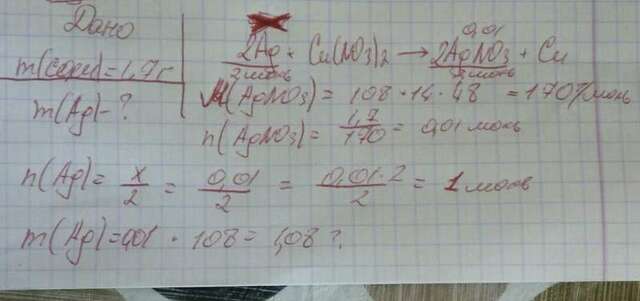 Дано
m(соли)=1,7г
m(Ag)-?
0,01
2Ag + Cu(NO3)2 → 2AgNO3 + Cu
2моль 2моль
M(AgNO3) = 108 + 14 + 48 = 170г/моль
n(AgNO3) = 1,7/170 = 0,01 моль
n(Ag) = x/2 = 0,01/2 = 0,01·2/2 = 1 моль
m(Ag)=0,01 · 108 = 1,08г.